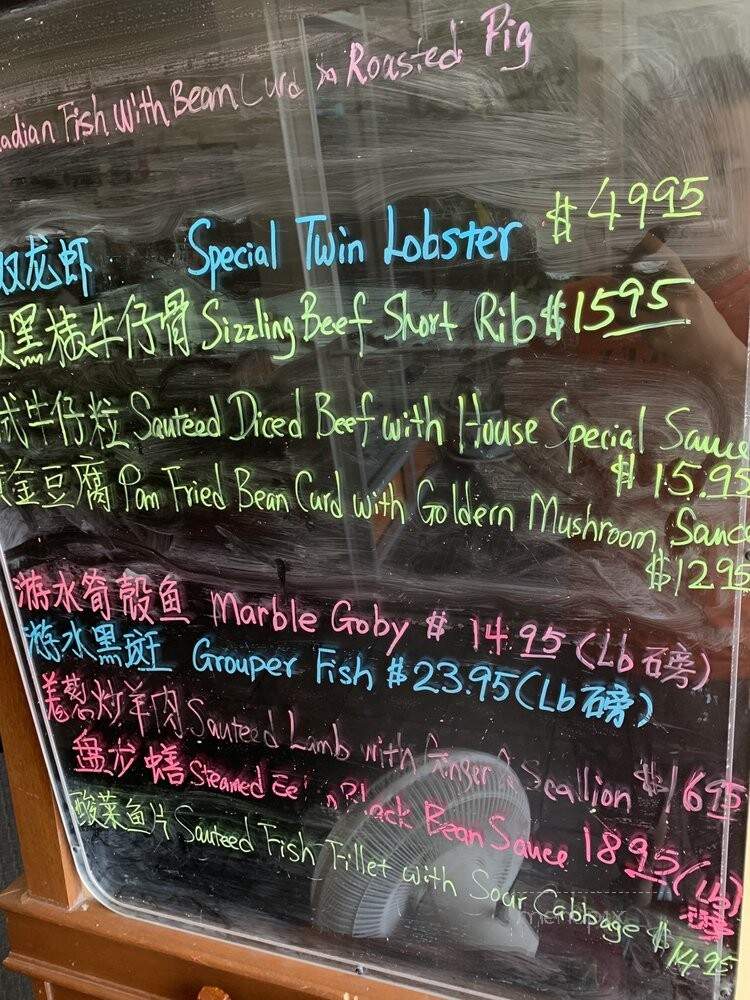 adian Fish With Bean Curd Roasted Pig
双龙虾 Special Twin Lobster $4995
黑椒牛仔骨 Sizzling Beef Short Rib $1595
式牛仔粒 Sauteed Diced Beef with House Special Sauce
$15.95
金豆腐 Pan Fried Bean Curd with Goldern Mushroom Sauce
$1295
游水筍殼鱼 Marble Goby $14.95 (Lb 磅)
游水黑斑 Grouper Fish $23.95 (Lb 磅)
羌葱炒羊肉 Sauteed Lamb with Ginger & Scallion $1695
盘龙鳝 Steamed Eel Black Bean Sauce 1895 (Lb)
酸菜鱼片 Sauteed Fish Fillet with Sour Cabbage $14.95